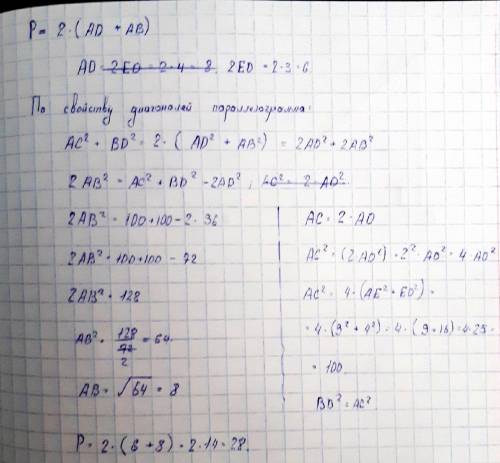 P = 2 · (AD + AB)
AD = 2EO = 2 · 4 = 8. 2ED = 2 · 3 = 6
По свойству диагоналей параллелограмма:
AC² + BD² = 2 · (AD² + AB²) = 2AD² + 2AB²
2AB² = AC² + BD² - 2AD² ; AC² = 2 AD²
2AB² = 100 + 100 - 2 · 36
2AB² = 100 + 100 - 72
2AB² = 128
AB² = 128/72 2 = 64
AB = √64 = 8
AC = 2 · AO
AC² = (2AO)² = 2² · AO² = 4 · AO²
AC² = 4 · (AE² + EO²) =
= 4 · (3² + 4²) = 4 · (9 + 16) = 4 · 25 =
= 100
BD² = AC²
P = 2 · (6 + 8) = 2 · 14 = 28.